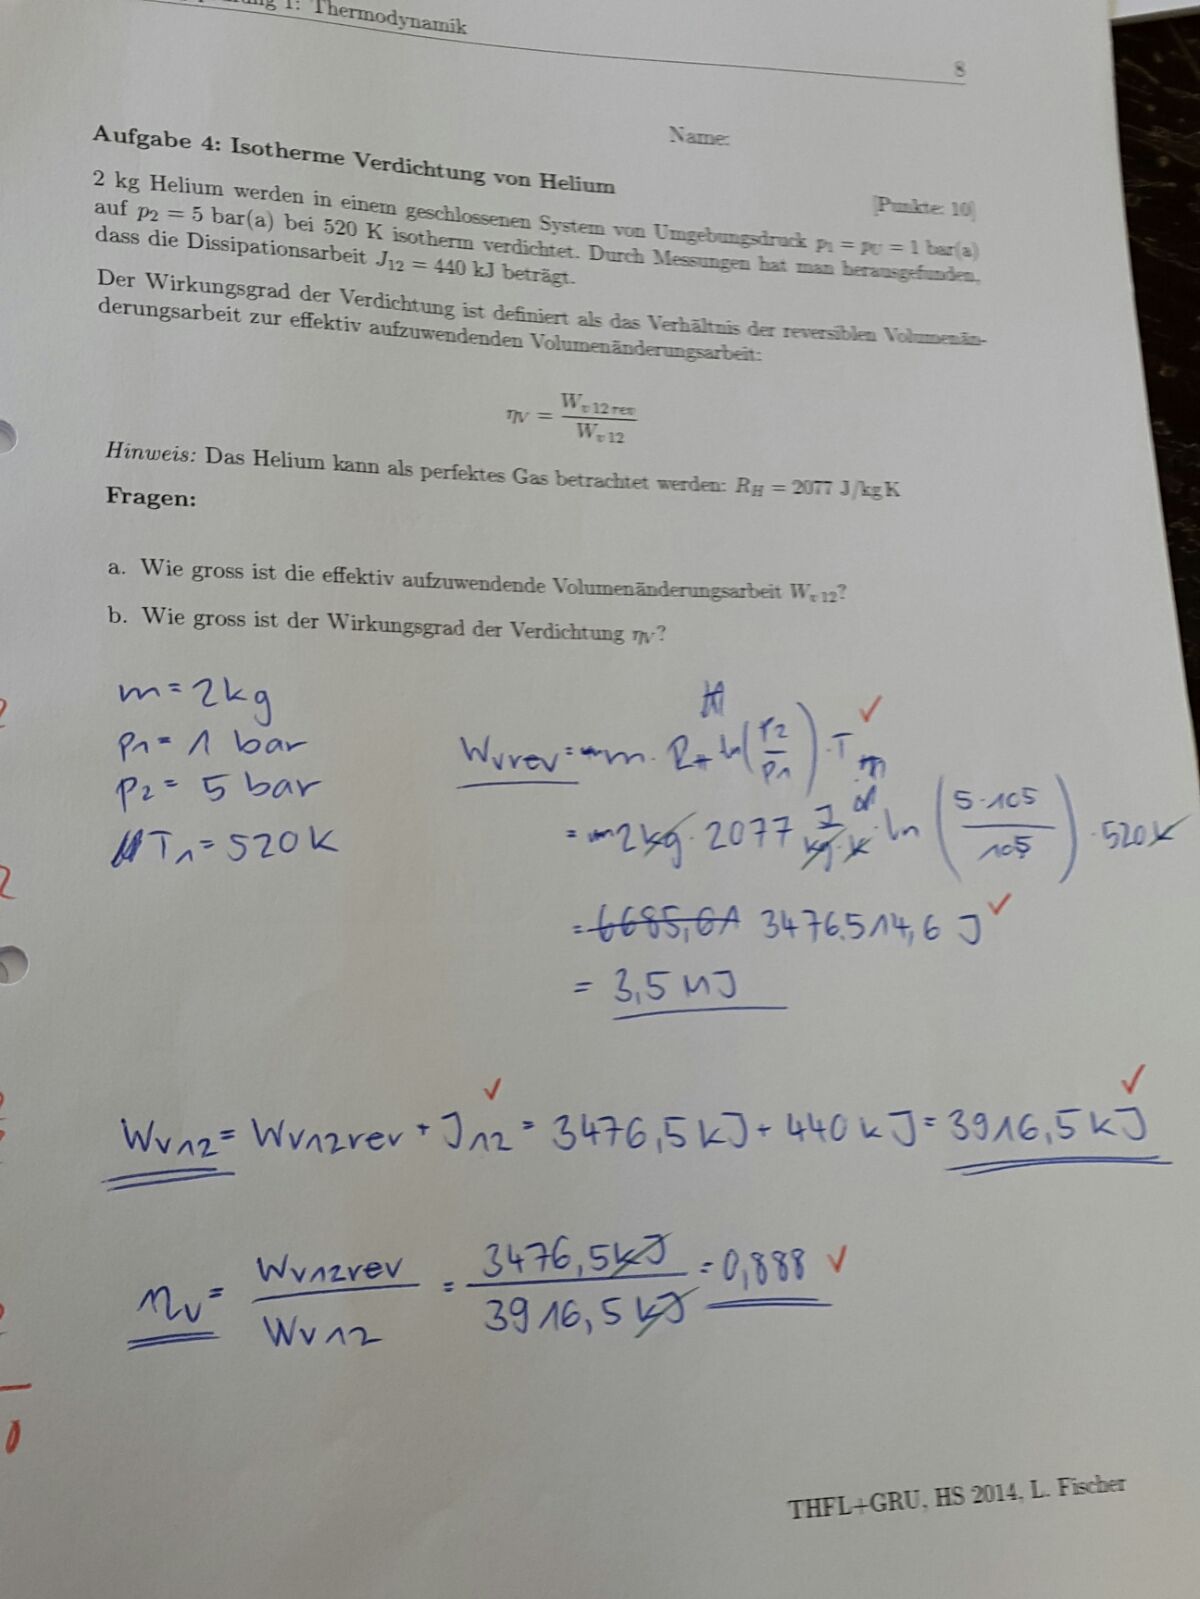 1: Thermodynamik
8
Name:
Aufgabe 4: Isotherme Verdichtung von Helium
[Punkte: 10]
2 kg Helium werden in einem geschlossenen System von Umgebungsdruck p₁ = p_U = 1 bar(a)
auf p₂ = 5 bar(a) bei 520 K isotherm verdichtet. Durch Messungen hat man herausgefunden,
dass die Dissipationsarbeit J₁₂ = 440 kJ beträgt.
Der Wirkungsgrad der Verdichtung ist definiert als das Verhältnis der reversiblen Volumenän-
derungsarbeit zur effektiv aufzuwendenden Volumenänderungsarbeit:
η_V = W_v 12 rev / W_v 12
Hinweis: Das Helium kann als perfektes Gas betrachtet werden: R_H = 2077 J/kg K
Fragen:
a. Wie gross ist die effektiv aufzuwendende Volumenänderungsarbeit W_v 12?
b. Wie gross ist der Wirkungsgrad der Verdichtung η_V?
m = 2 kg
p₁ = 1 bar
p₂ = 5 bar
T₁ = 520 K
Wvrev = m · R · ln(p₂/p₁) · T ✓
= 2kg · 2077 J/kg·K · ln(5·10⁵/10⁵) · 520K
= 6685,61 3476514,6 J ✓
= 3,5 MJ
Wv12 = Wv12rev + J12 = 3476,5 kJ + 440 kJ = 3916,5 kJ ✓
ηv = Wv12rev / Wv12 = 3476,5 kJ / 3916,5 kJ = 0,888 ✓
THFL+GRU, HS 2014, L. Fischer